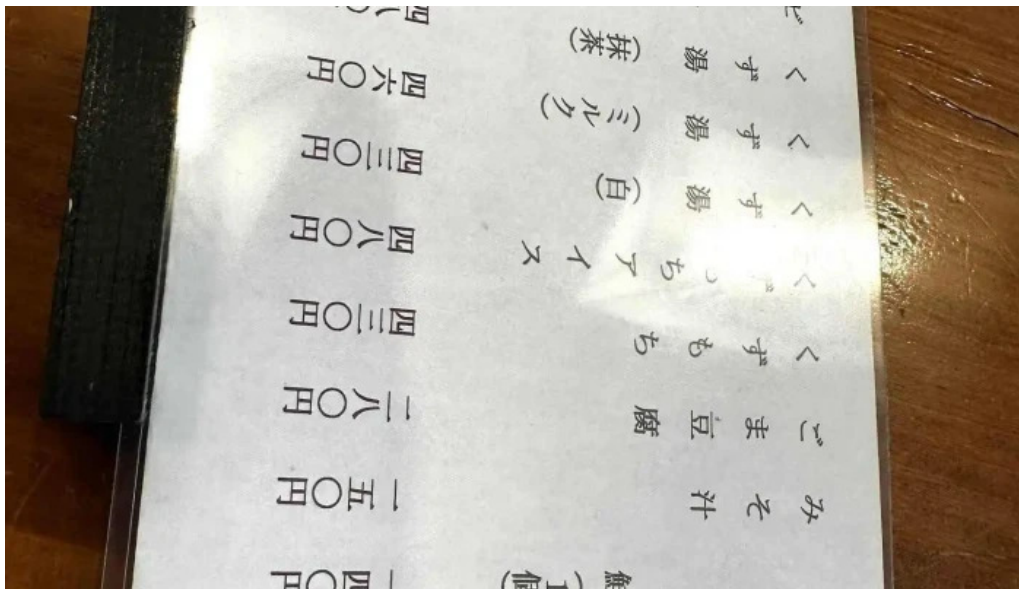 鮭(1個) 一四〇円
みそ汁 一五〇円
ごま豆腐 二八〇円
くずもち 四三〇円
くずもちアイス 四八〇円
くず湯(白) 四三〇円
くず湯(ミルク) 四六〇円
くず湯(抹茶) 四八〇